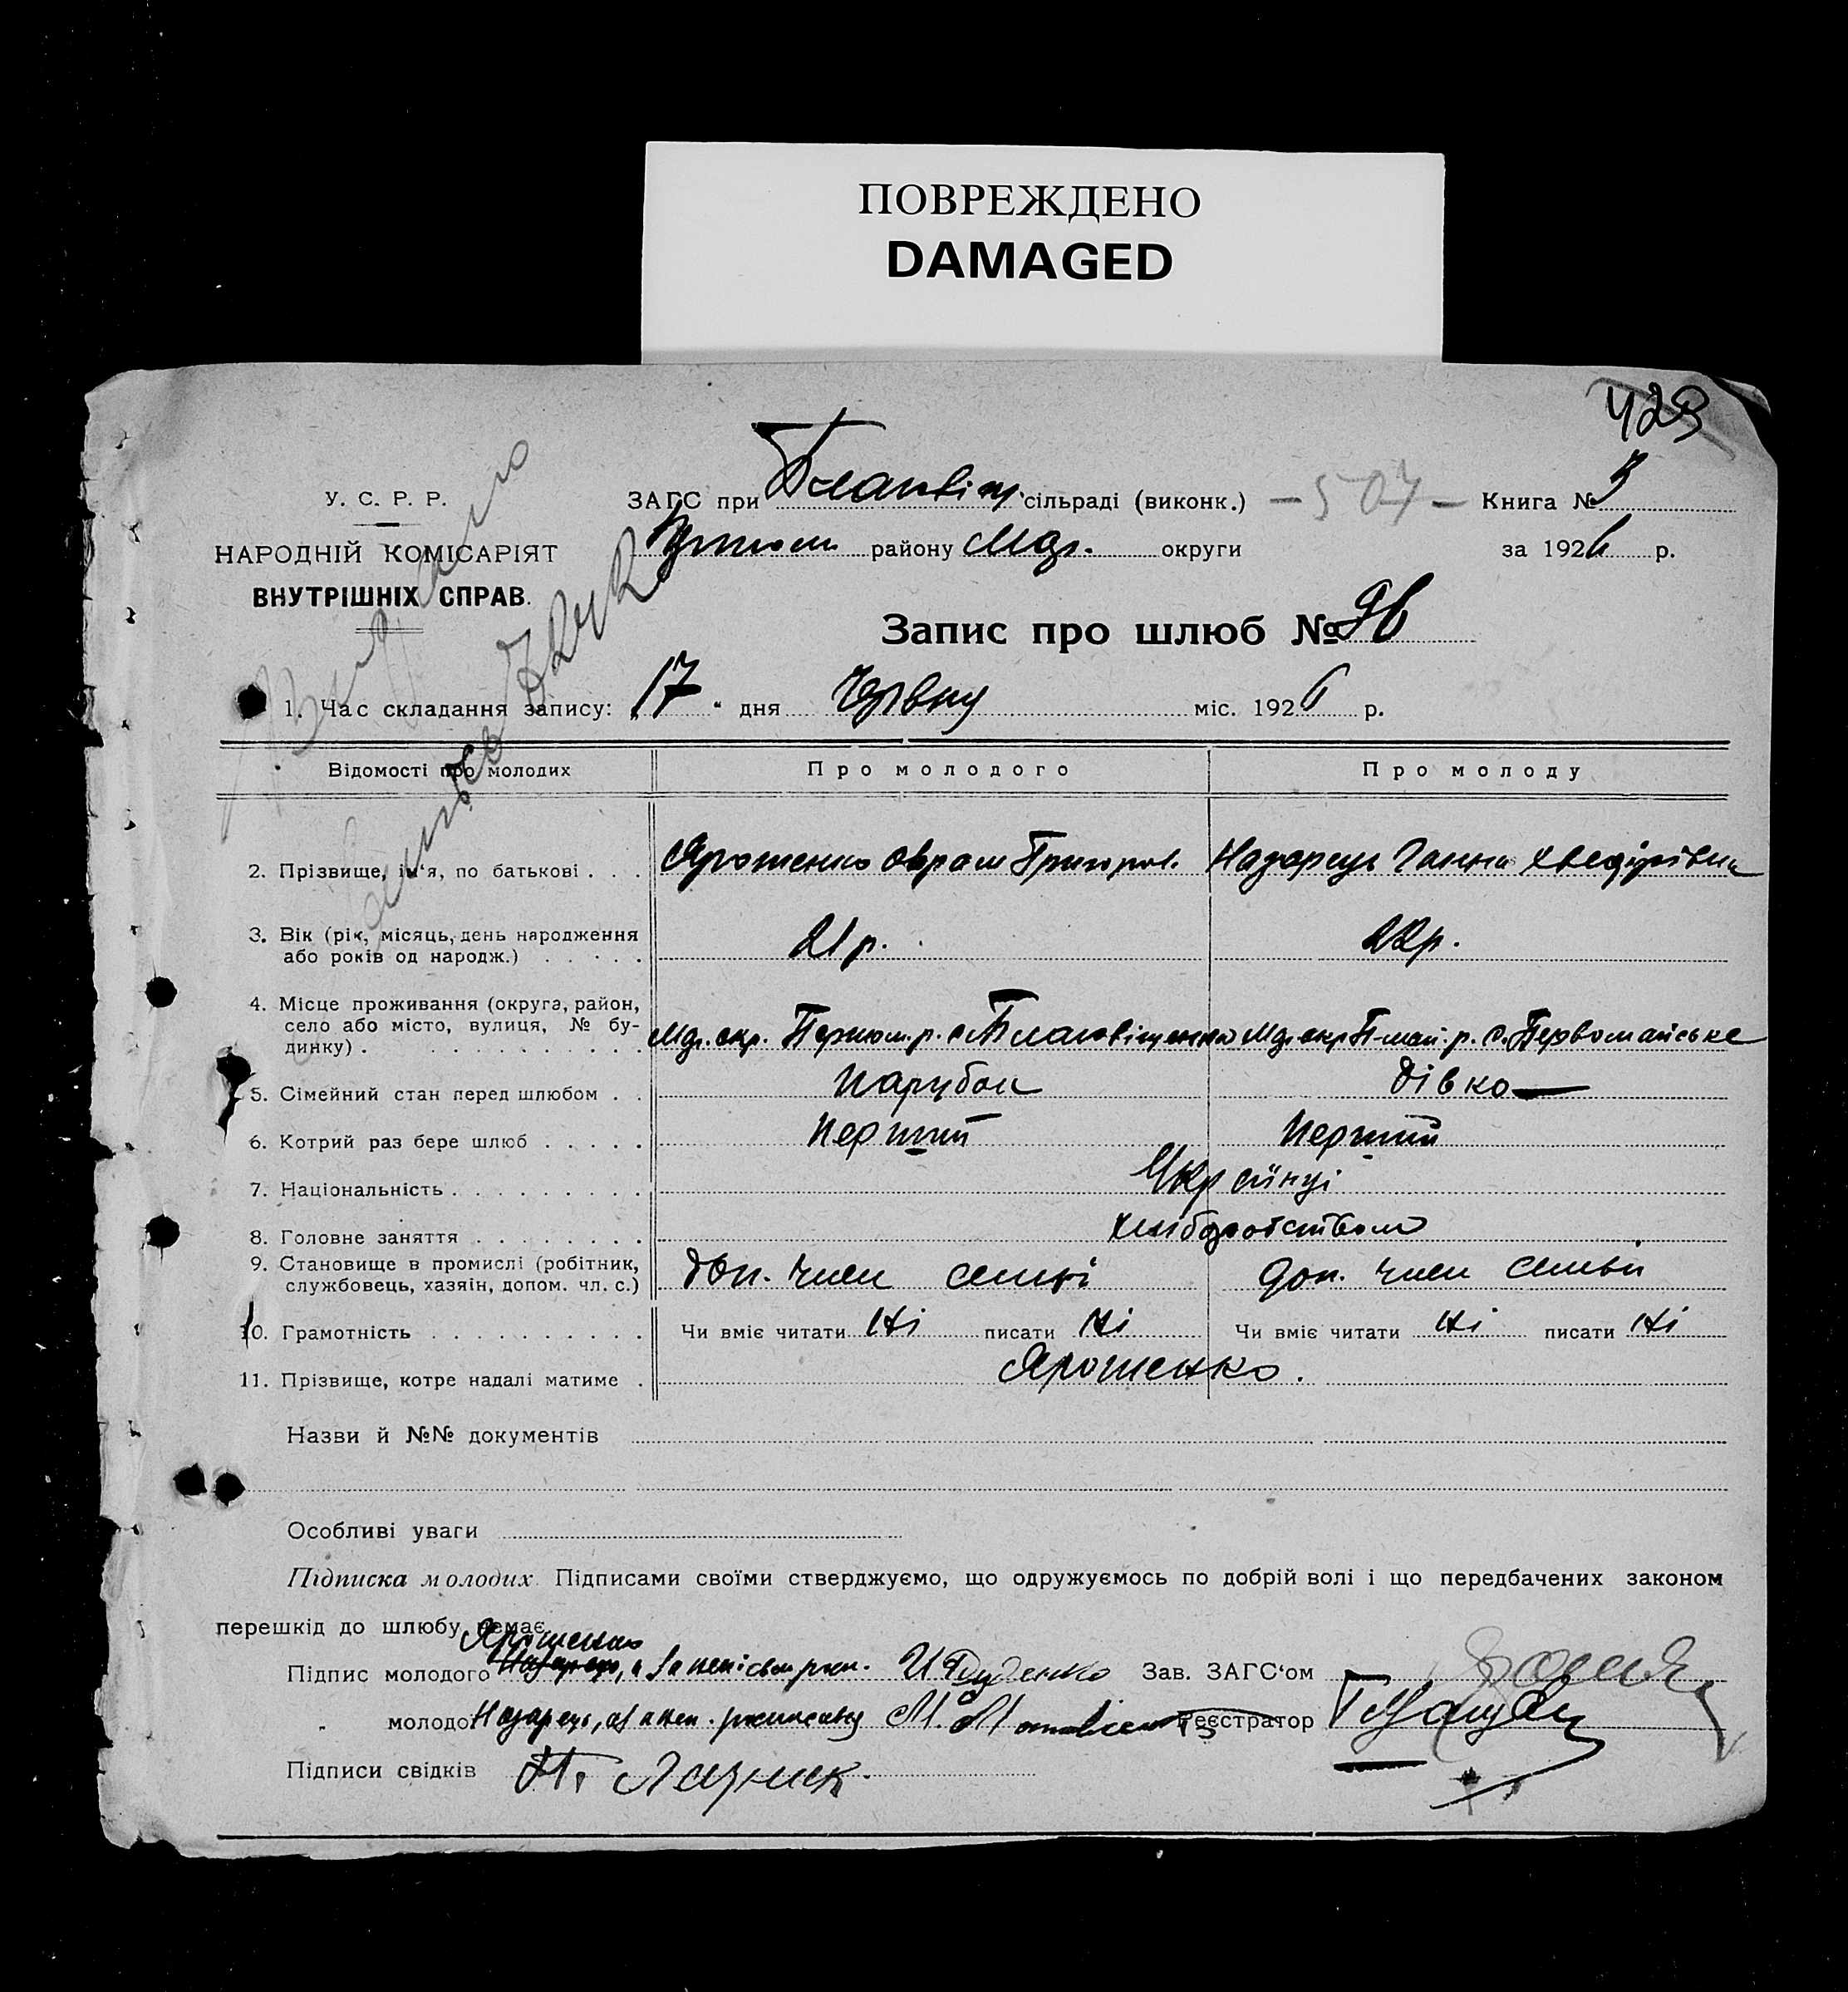 ПОВРЕЖДЕНО
DAMAGED
429
У. С. Р. Р.
НАРОДНІЙ КОМІСАРІЯТ
ВНУТРІШНІХ СПРАВ.
ЗАГС при сільраді (виконк.) — 507 — Книга № 3
району Мдг. округи за 1926 р.
Запис про шлюб № 96
1. Час складання запису: 17 " дня Червня міс. 1926 р.
Відомості про молодих Про молодого Про молоду
2. Прізвище, ім'я, по батькові . . . Ярошенко Оврам Григоров. Назарець Ганна Хведірівна
3. Вік (рік, місяць, день народження
або років од народж.) . . . . . 21 р. 22 р.
4. Місце проживання (округа, район,
село або місто, вулиця, № бу-
динку) . . . . . . . . . . Мдг. окр. Первом. р. с. Благовіщенка Мдг. окр. П-май. р. с. Первомайське
5. Сімейний стан перед шлюбом . . Парубок Дівка
6. Котрий раз бере шлюб . . . . . Перший Перший
7. Національність . . . . . . . . . Українці
8. Головне заняття . . . . . . . . Хліборобством
9. Становище в промислі (робітник,
службовець, хазяін, допом. чл. с.) Доп. член семьї Доп. член семьї
10. Грамотність . . . . . . . . . . Чи вміє читати Ні писати Ні Чи вміє читати Ні писати Ні
11. Прізвище, котре надалі матиме . Ярошенко.
Назви й №№ документів
Особливі уваги
Підписка молодих. Підписами своїми стверджуємо, що одружуємось по добрій волі і що передбачених законом
перешкід до шлюбу немає.
Ярошенко
Підпис молодого Назарець, а за непісьм. росп. И Діденко Зав. ЗАГС'ом
" молодої Назарець, а за неп. М. Реєстратор
Підписи свідків